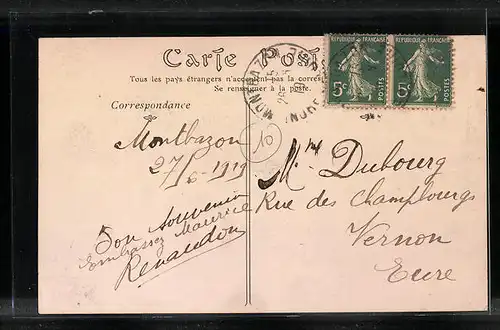 Carte Postale
Tous les pays étrangers n'acceptent pas la corres
Se renseigner à la poste.
Correspondance
RÉPUBLIQUE FRANÇAISE
5c
POSTES
RÉPUBLIQUE FRANÇAISE
5c
POSTES
10
Montbazon
27/6-1919
Bon souvenir
Embrassez Maurice
Renaudon
Dubourg
Rue des Champbourgs
Vernon
Eure